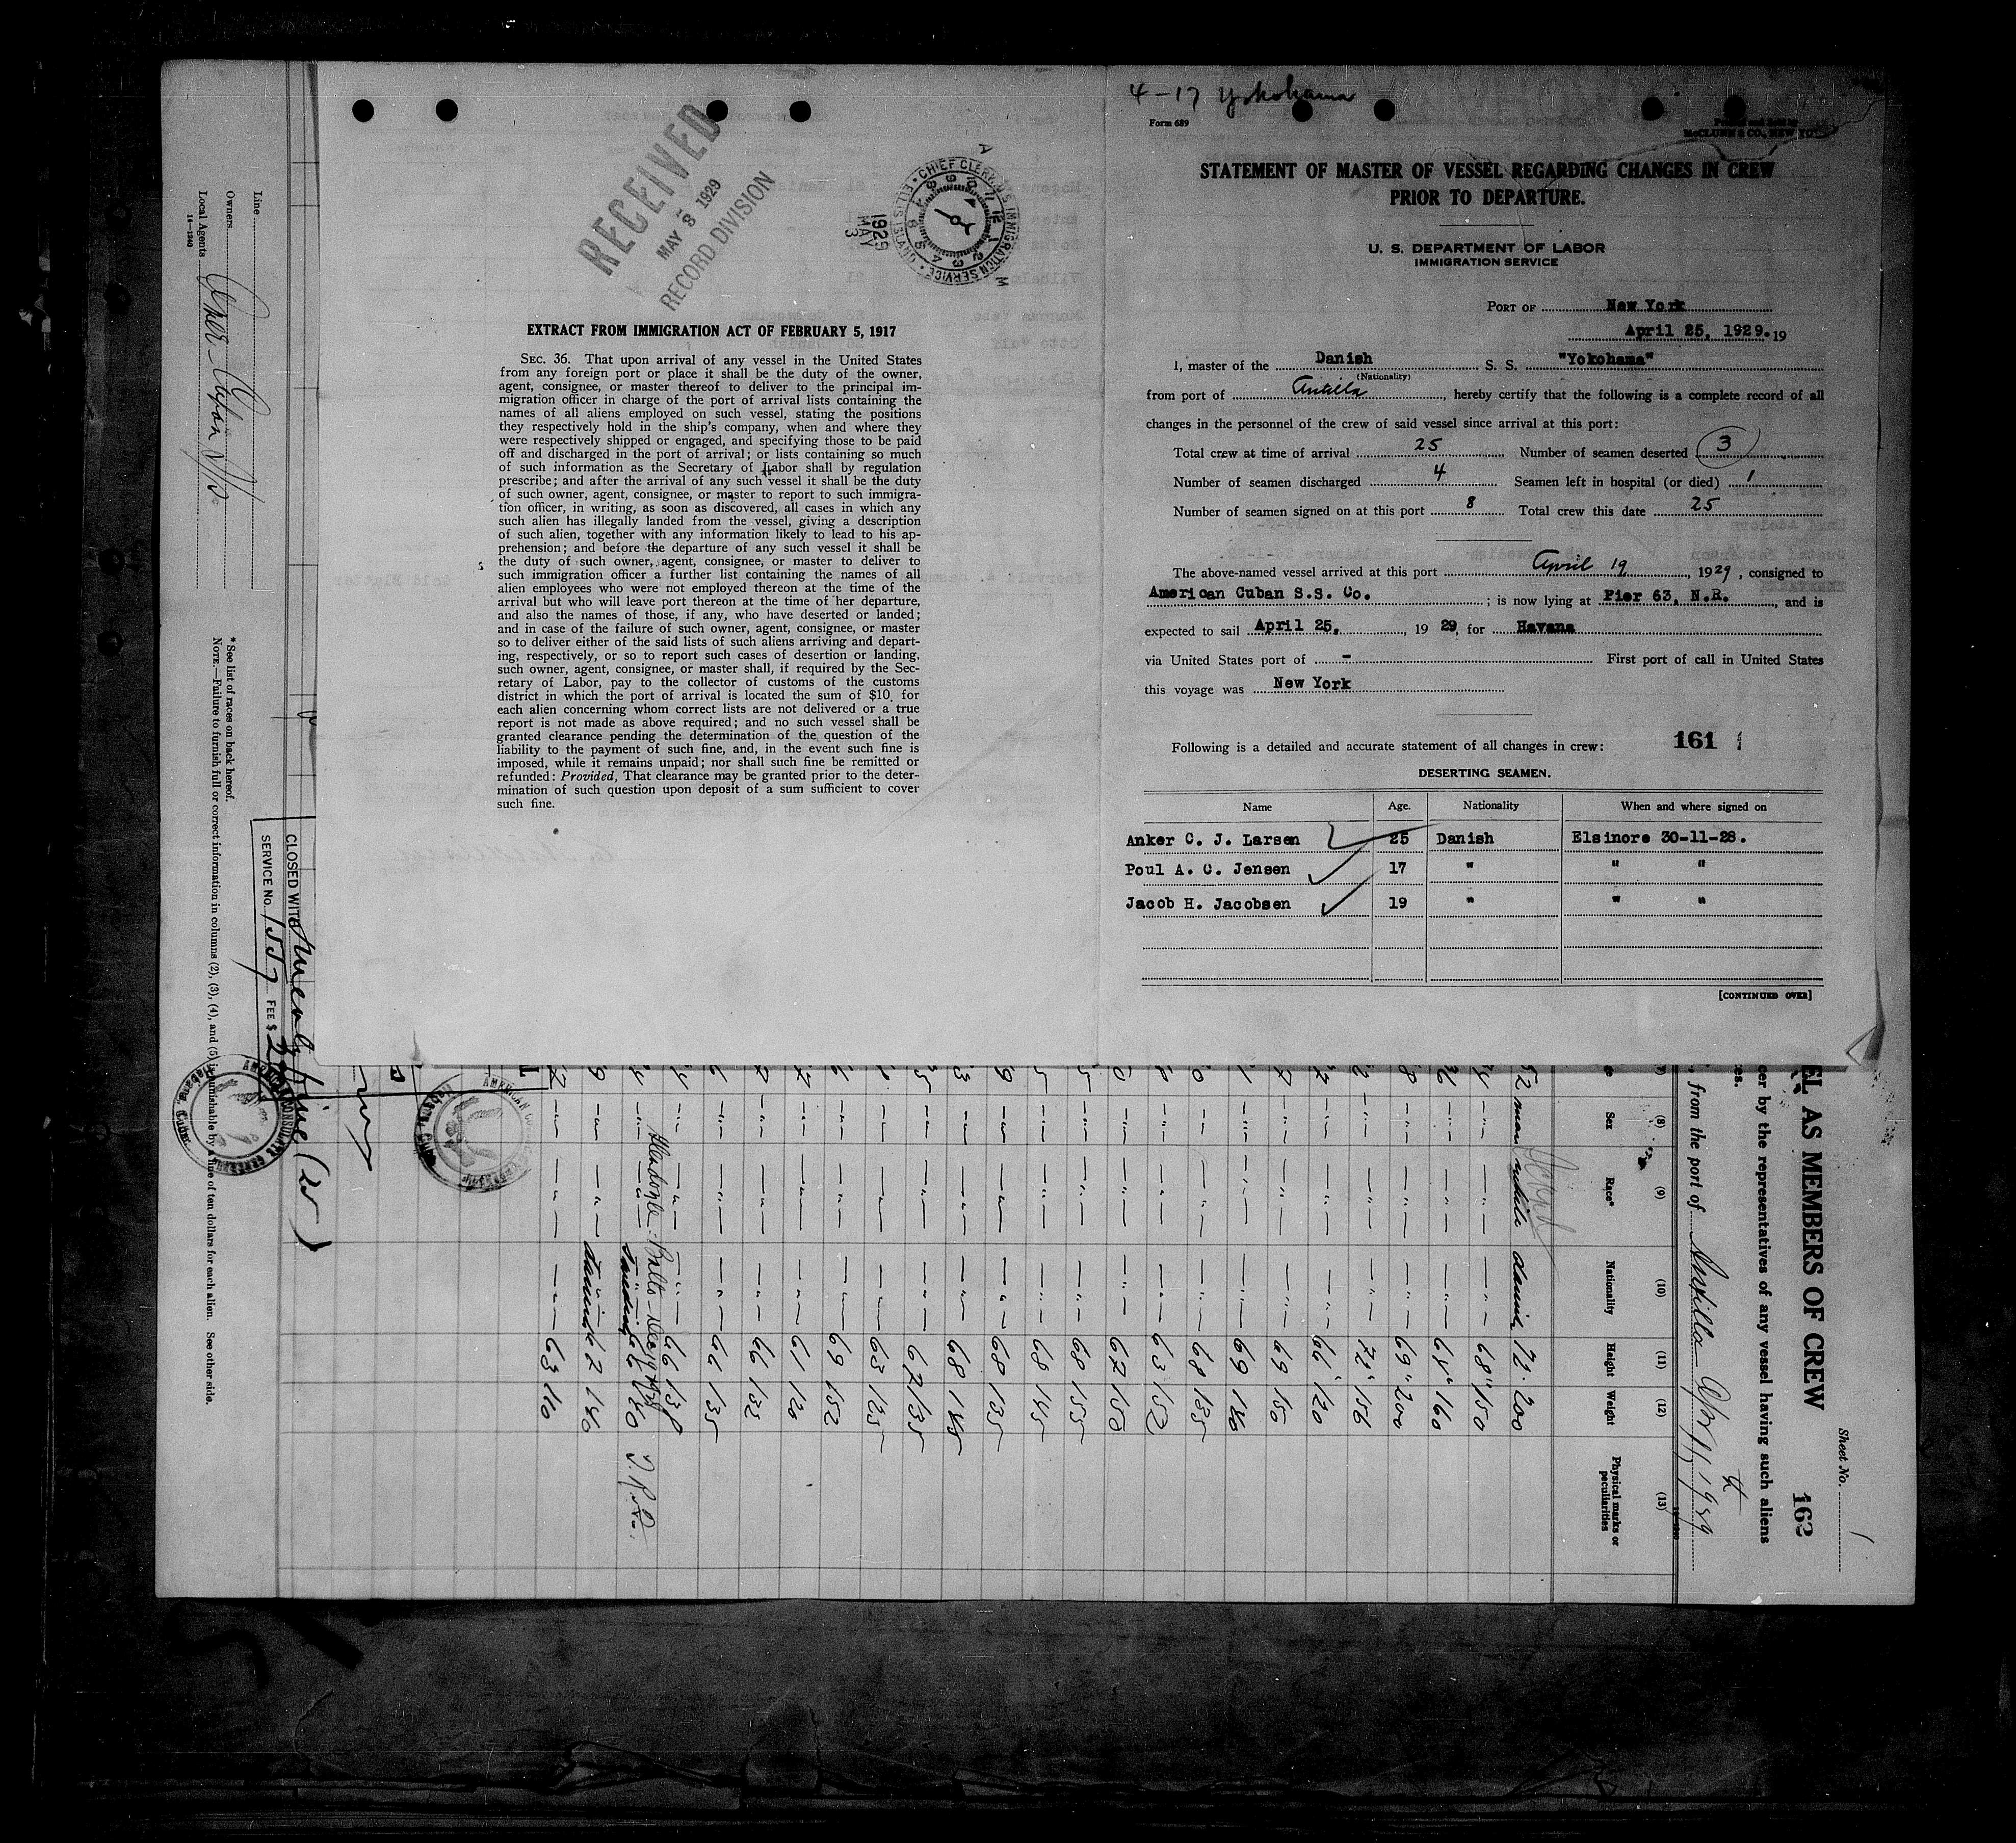 RECEIVED
MAY 8 1929
RECORD DIVISION
CHIEF CLERK U.S. IMMIGRATION SERVICE
1929
MAY
3
A
M
EXTRACT FROM IMMIGRATION ACT OF FEBRUARY 5, 1917
SEC. 36. That upon arrival of any vessel in the United States
from any foreign port or place it shall be the duty of the owner,
agent, consignee, or master thereof to deliver to the principal im-
migration officer in charge of the port of arrival lists containing the
names of all aliens employed on such vessel, stating the positions
they respectively hold in the ship's company, when and where they
were respectively shipped or engaged, and specifying those to be paid
off and discharged in the port of arrival; or lists containing so much
of such information as the Secretary of Labor shall by regulation
prescribe; and after the arrival of any such vessel it shall be the duty
of such owner, agent, consignee, or master to report to such immigra-
tion officer, in writing, as soon as discovered, all cases in which any
such alien has illegally landed from the vessel, giving a description
of such alien, together with any information likely to lead to his ap-
prehension; and before the departure of any such vessel it shall be
the duty of such owner, agent, consignee, or master to deliver to
such immigration officer a further list containing the names of all
alien employees who were not employed thereon at the time of the
arrival but who will leave port thereon at the time of her departure,
and also the names of those, if any, who have deserted or landed;
and in case of the failure of such owner, agent, consignee, or master
so to deliver either of the said lists of such aliens arriving and depart-
ing, respectively, or so to report such cases of desertion or landing,
such owner, agent, consignee, or master shall, if required by the Sec-
retary of Labor, pay to the collector of customs of the customs
district in which the port of arrival is located the sum of $10 for
each alien concerning whom correct lists are not delivered or a true
report is not made as above required; and no such vessel shall be
granted clearance pending the determination of the question of the
liability to the payment of such fine, and, in the event such fine is
imposed, while it remains unpaid; nor shall such fine be remitted or
refunded: Provided, That clearance may be granted prior to the deter-
mination of such question upon deposit of a sum sufficient to cover
such fine.
4-17 Yokohama
Form 689
Printed and Sold by
McCLUNN & CO., NEW YO
STATEMENT OF MASTER OF VESSEL REGARDING CHANGES IN CREW
PRIOR TO DEPARTURE.
U. S. DEPARTMENT OF LABOR
IMMIGRATION SERVICE
PORT OF New York
April 25, 1929. 19
I, master of the Danish S. S. "Yokohama"
(Nationality)
from port of Antilla, hereby certify that the following is a complete record of all
changes in the personnel of the crew of said vessel since arrival at this port:
Total crew at time of arrival 25 Number of seamen deserted 3
Number of seamen discharged 4 Seamen left in hospital (or died) 1
Number of seamen signed on at this port 8 Total crew this date 25
The above-named vessel arrived at this port April 19, 1929, consigned to
American Cuban S.S. Co. ; is now lying at Pier 63, N.R., and is
expected to sail April 25, 19 29, for Havana
via United States port of - First port of call in United States
this voyage was New York
Following is a detailed and accurate statement of all changes in crew: 161
DESERTING SEAMEN.
Name Age. Nationality When and where signed on
Anker C. J. Larsen 25 Danish Elsinore 30-11-28.
Poul A. C. Jensen 17 " " "
Jacob H. Jacobsen 19 " " "
[CONTINUED OVER]
Sheet No. 1
162
EL AS MEMBERS OF CREW
cer by the representatives of any vessel having such aliens
es.
from the port of Antilla 1929
(8) (9) (10) (11) (12) (13)
Sex Race* Nationality Height Weight Physical marks or peculiarities
52 man white danish 72 200
68 150
160
69 200
72 156
66 130
69 150
69 180
68 135
63 152
67 150
68 155
68 145
68 135
68 145
67 135
63 125
69 152
61 120
66 132
66 135
66 138
63 110
AMERICAN CONSULATE GENERAL
Habana, Cuba.
CLOSED WITH
SERVICE No. 1557 FEE $
*See list of races on back hereof.
NOTE.—Failure to furnish full or correct information in columns (2), (3), (4), and (5) is punishable by a fine of ten dollars for each alien. See other side.
Line
Owners
Local Agents
14—1240